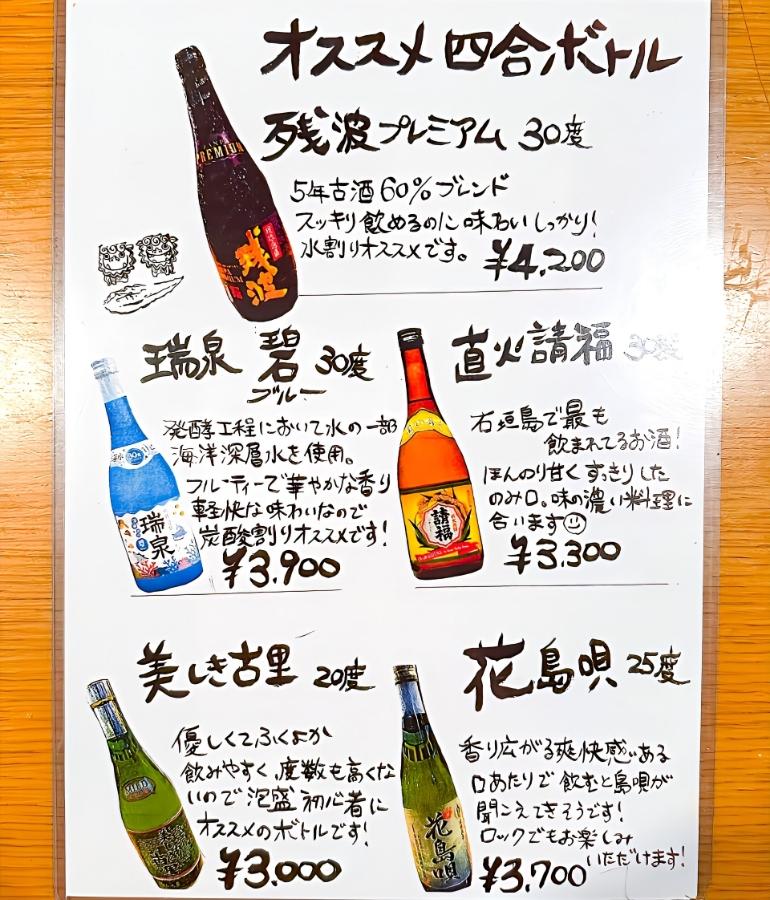 オススメ四合ボトル
残波プレミアム 30度
5年古酒60%ブレンド
スッキリ飲めるのに味わいしっかり!
水割りオススメです。
¥4,200
PREMIUM
残波
瑞泉 碧 30度
ブルー
発酵工程において水の一部
海洋深層水を使用。
フルーティーで華やかな香り
軽快な味わいなので
炭酸割りオススメです!
¥3,900
瑞泉
直火請福 30度
石垣島で最も
飲まれてるお酒!
ほんのり甘くすっきりした
のみ口。味の濃い料理に
合います
¥3,300
請福
美しき古里 20度
優しくてふくよか
飲みやすく、度数も高くな
いので泡盛初心者に
オススメのボトルです!
¥3,000
花島唄 25度
香り広がる爽快感ある
口あたりで飲むと島唄が
聞こえてきそうです!
ロックでもお楽しみ
いただけます!
¥3,700
花島唄